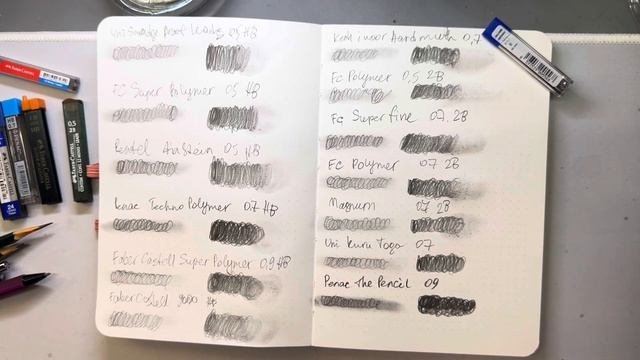 Uni Smudge Proof Leads 0.5 HB
FC Super Polymer 0.5 HB
Pentel Ain Stein 0.5 HB
Penac Techno Polymer 0.7 HB
Faber Castell Super Polymer 0.9 HB
Faber Castell 9000 HB
Koh i noor Hardtmuth 0,7
FC Polymer 0,5 2B
FC Super fine 07. 2B
FC Polymer 07. 2B
Magnum 07 2B
Uni Kuru Toga 07
Penac The Pencil 09
0.5
2B